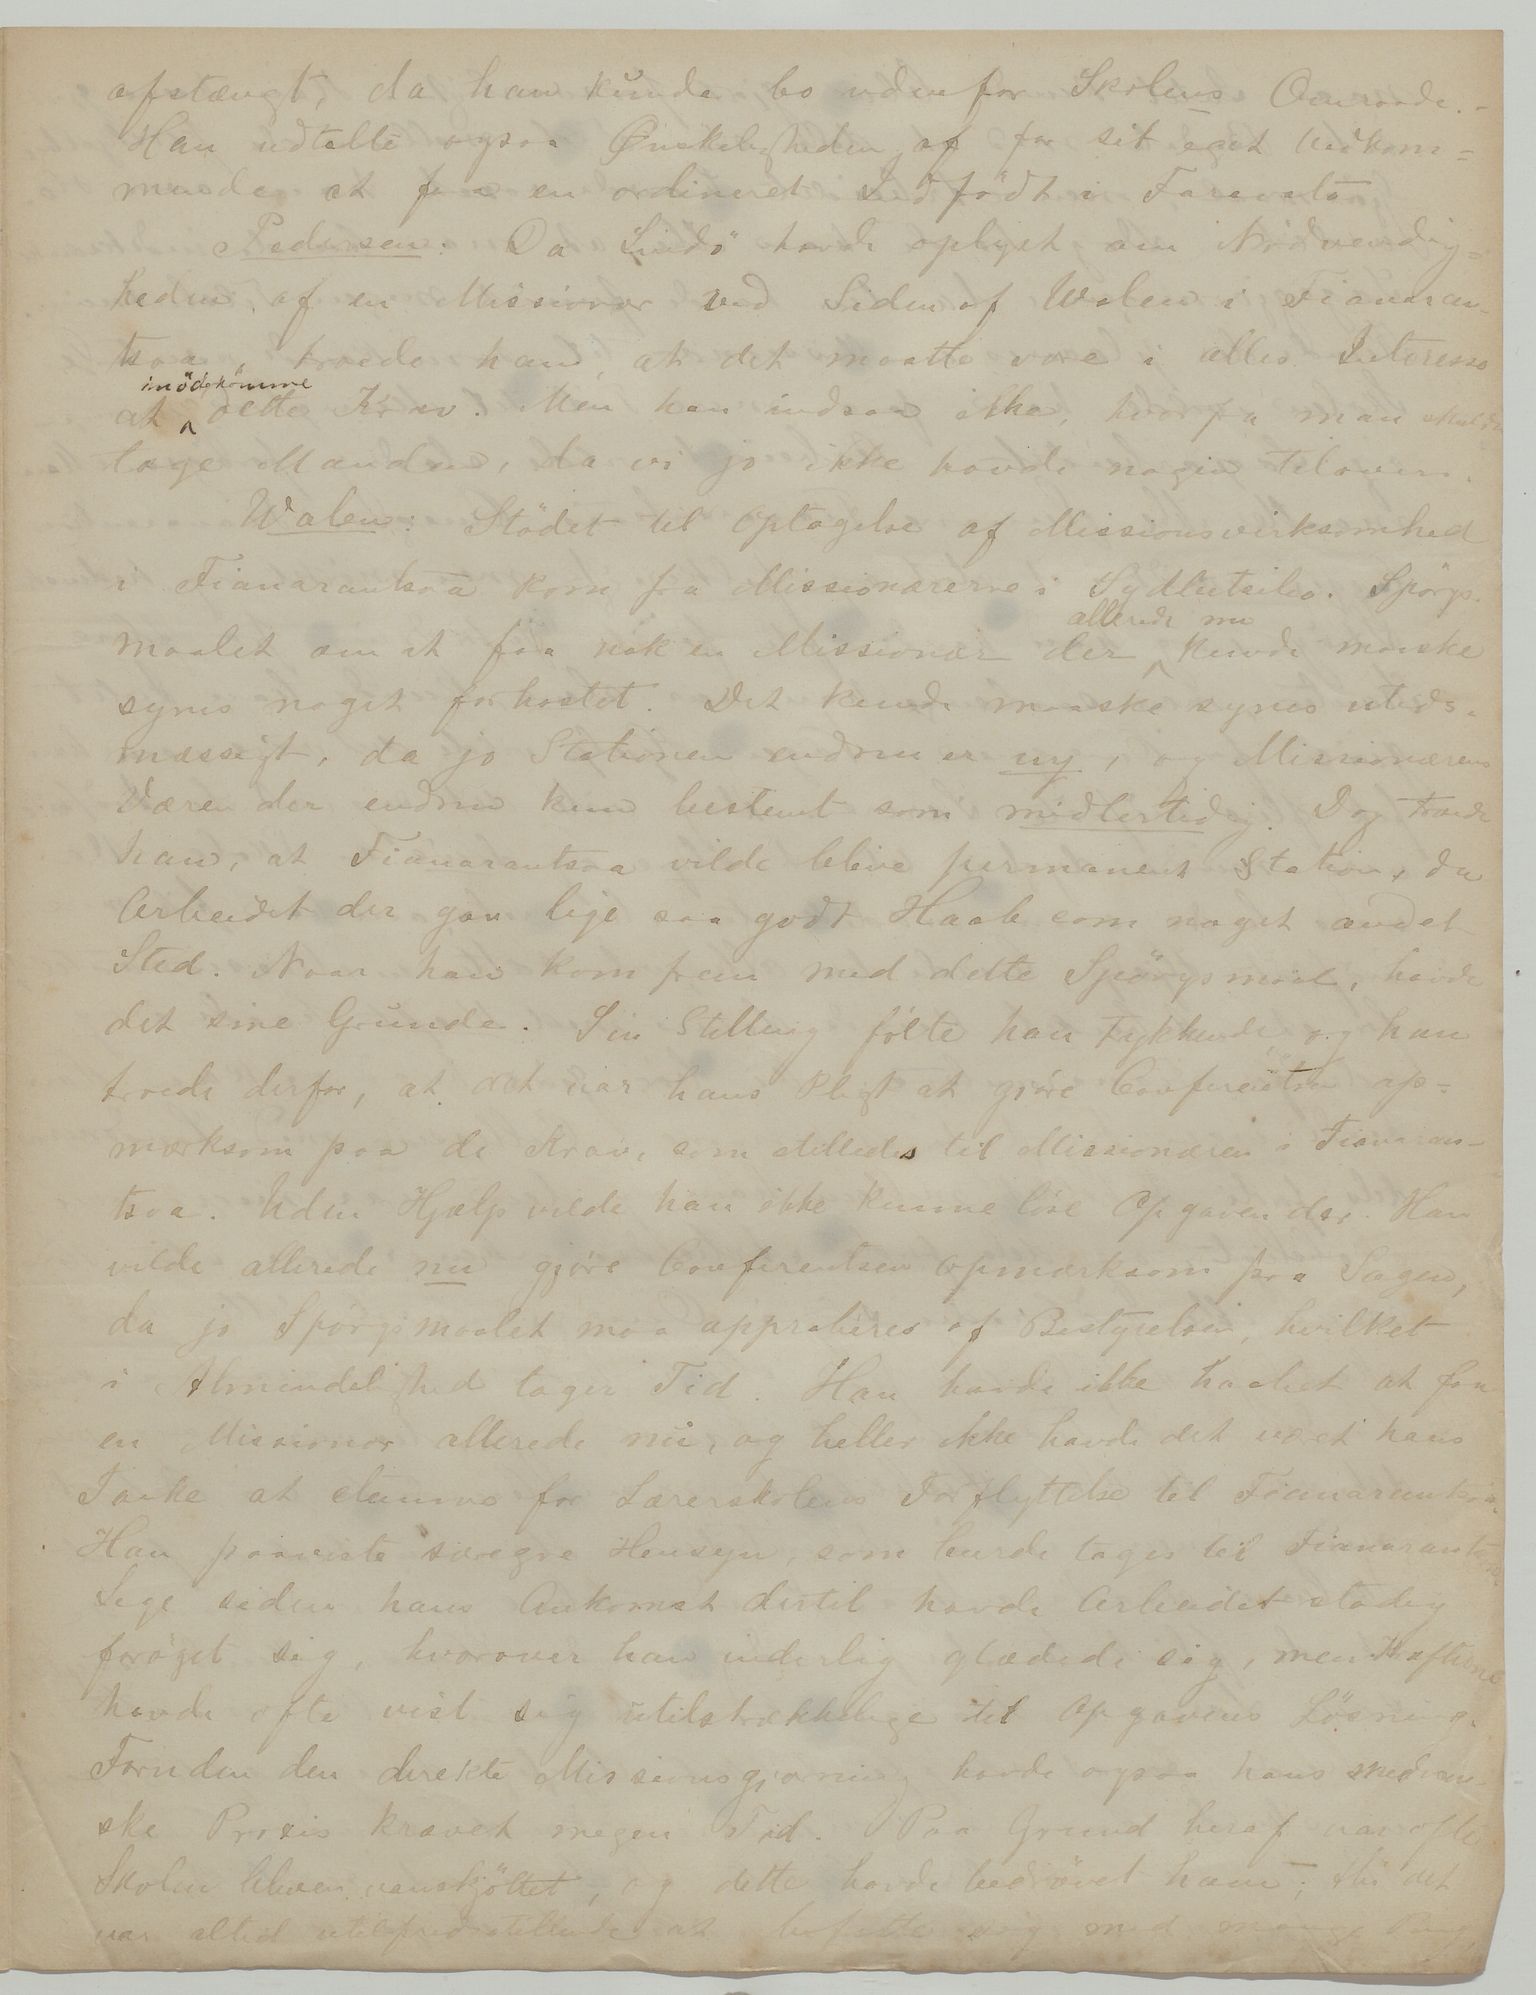 afstængt, da han kunde bo udenfor Skolens Omraade.-
Han udtalte ogsaa Ønskeligheden af for sit eget Vedkom=
mende at faa en ordineret Indfödt i Faravato
Pedersen: Da Lindö havde oplyst om Nödvendig=
heden af en Missionær ved Siden af Walen i Fianaran-
tsoa, troede han, at det maatte være i alles Interesse
imödekomme
at dette Krav. Men han indsaa ikke, hvorfra man skulde
tage Manden, da vi jo ikke havde nogen tilovers.
Walen: Stödet til Optagelse af Missionsvirksomhed
i Fianarantsoa kom fra Missionærerne i Sydbetsileo. Spörgs-
allerede nu
maalet om at faa nok en Missionær der kunde maaske
synes noget forhastet. Det kunde maaske synes utids-
mæssigt, da jo Stationen endnu er ny, og Missionærens
Væren der endnu kun bestemt som midlertidig. Dog troede
han, at Fianarantsoa vilde blive permanent Station, da
Arbeidet der gav lige saa godt Haab som noget andet
Sted. Naar han kom frem med dette Spörgsmaal, havde
det sine Grunde. Sin Stilling fölte han trykkende og han
troede derfor, at det var hans Pligt at gjöre Conferentsen op=
mærksom paa de Krav, som stilledes til Missionæren i Fianaran-
tsoa. Uden Hjælp vilde han ikke kunne löse Opgaven der. Han
vilde allerede nu gjöre Conferentsen opmærksom paa Sagen,
da jo Spörgsmaalet maa approberes af Bestyrelsen, hvilket
i Almindelighed tager Tid. Han havde ikke haabet at faa
en Missionær allerede nu, og heller ikke havde det været hans
Tanke at stemme for Lærerskolens Forflyttelse til Fianarantsoa.
Han paaviste særegne Hensyn, som burde tages til Fianarantsoa
Lige siden hans Ankomst dertil havde Arbeidet stadig
forøget sig, hvorover han inderlig glædede sig, men Kræfterne
havde ofte vist sig utilstrækkelige til Opgavens Lösning.
Foruden den direkte Missionsgjerning havde ogsaa hans medicin-
ske Praxis krævet megen Tid. Paa Grund heraf var ofte
Skolen bleven vanskjöttet, og dette havde bedrövet ham; thi det
var altid utilfredsstillende at befatte sig med mange Ting